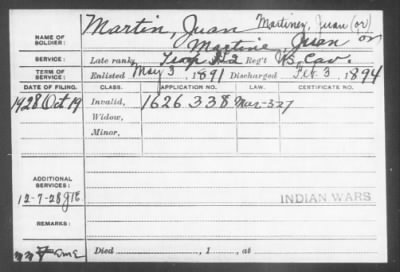 NAME OF SOLDIER: Martin, Juan Martinez, Juan (or)
Martine Juan or
SERVICE: Late rank, Reg't U.S. Cav.
TERM OF SERVICE: Enlisted May 3, 1891 Discharged Feb. 3, 1894
DATE OF FILING. CLASS. APPLICATION NO. LAW. CERTIFICATE NO.
1928 Oct 19 Invalid, 1626338 Mar-3-27
Widow,
Minor,
ADDITIONAL SERVICES:
12-7-28
INDIAN WARS
REMARKS:
Died , 1 , at